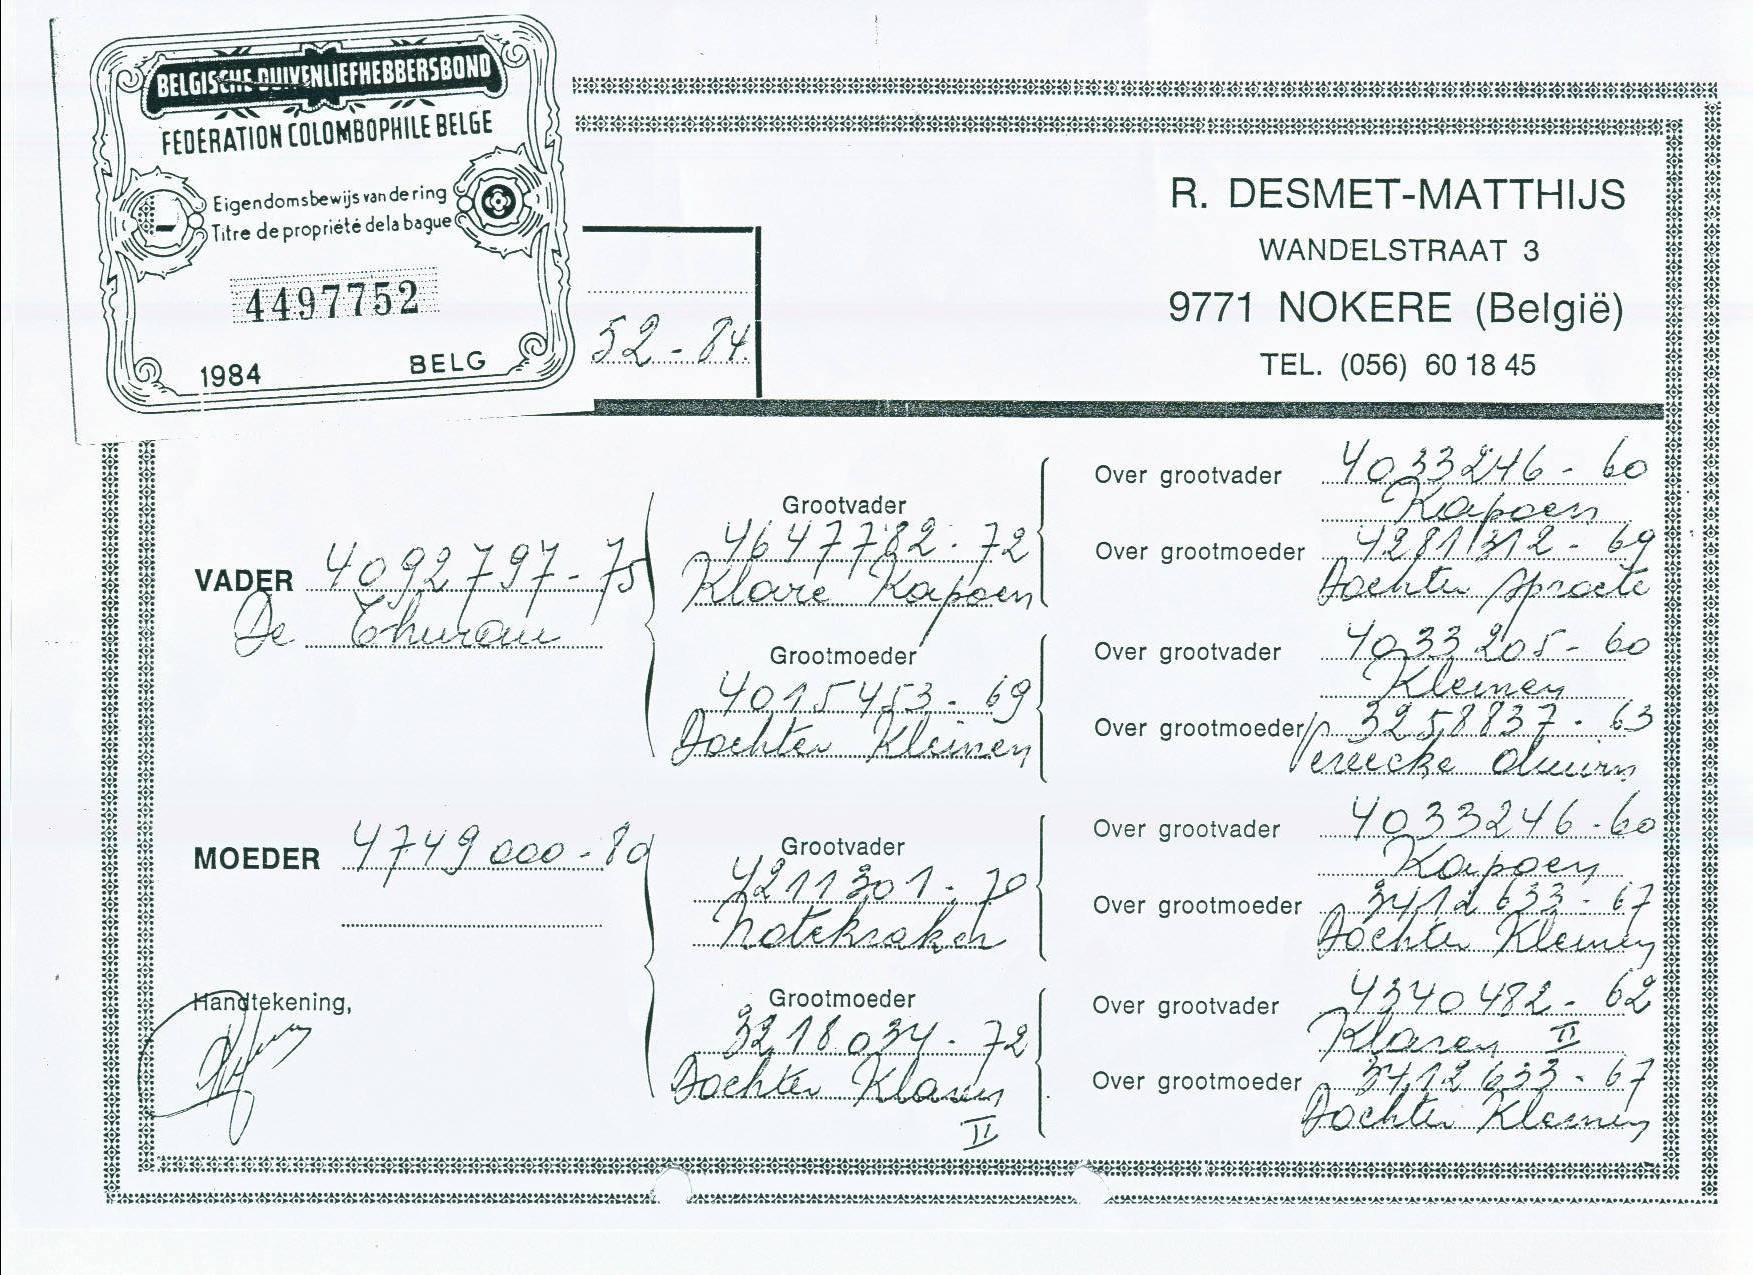 BELGISCHE DUIVENLIEFHEBBERSBOND
FEDERATION COLOMBOPHILE BELGE
Eigendomsbewijs van de ring
Titre de propriété de la bague
4497752
1984 BELG
52-84.
R. DESMET-MATTHIJS
WANDELSTRAAT 3
9771 NOKERE (België)
TEL. (056) 60 18 45
VADER 4092797-75
De
Grootvader
4647782-72
Klare Kapoen
Grootmoeder
4015453-69
Dochter Kleinen
Over grootvader 4033246-60
Kapoen
Over grootmoeder 4281312-69
Dochter Sproete
Over grootvader 4033205-60
Kleinen
Over grootmoeder 3258837-63
Vereecke
MOEDER 4749000-80
Grootvader
4211301-70
Notekraker
Grootmoeder
3218034-72
Dochter Klaren
II
Over grootvader 4033246-60
Kapoen
Over grootmoeder 3412633-67
Dochter Kleinen
Over grootvader 4340482-62
Klaren II
Over grootmoeder 3412633-67
Dochter Kleinen
Handtekening,